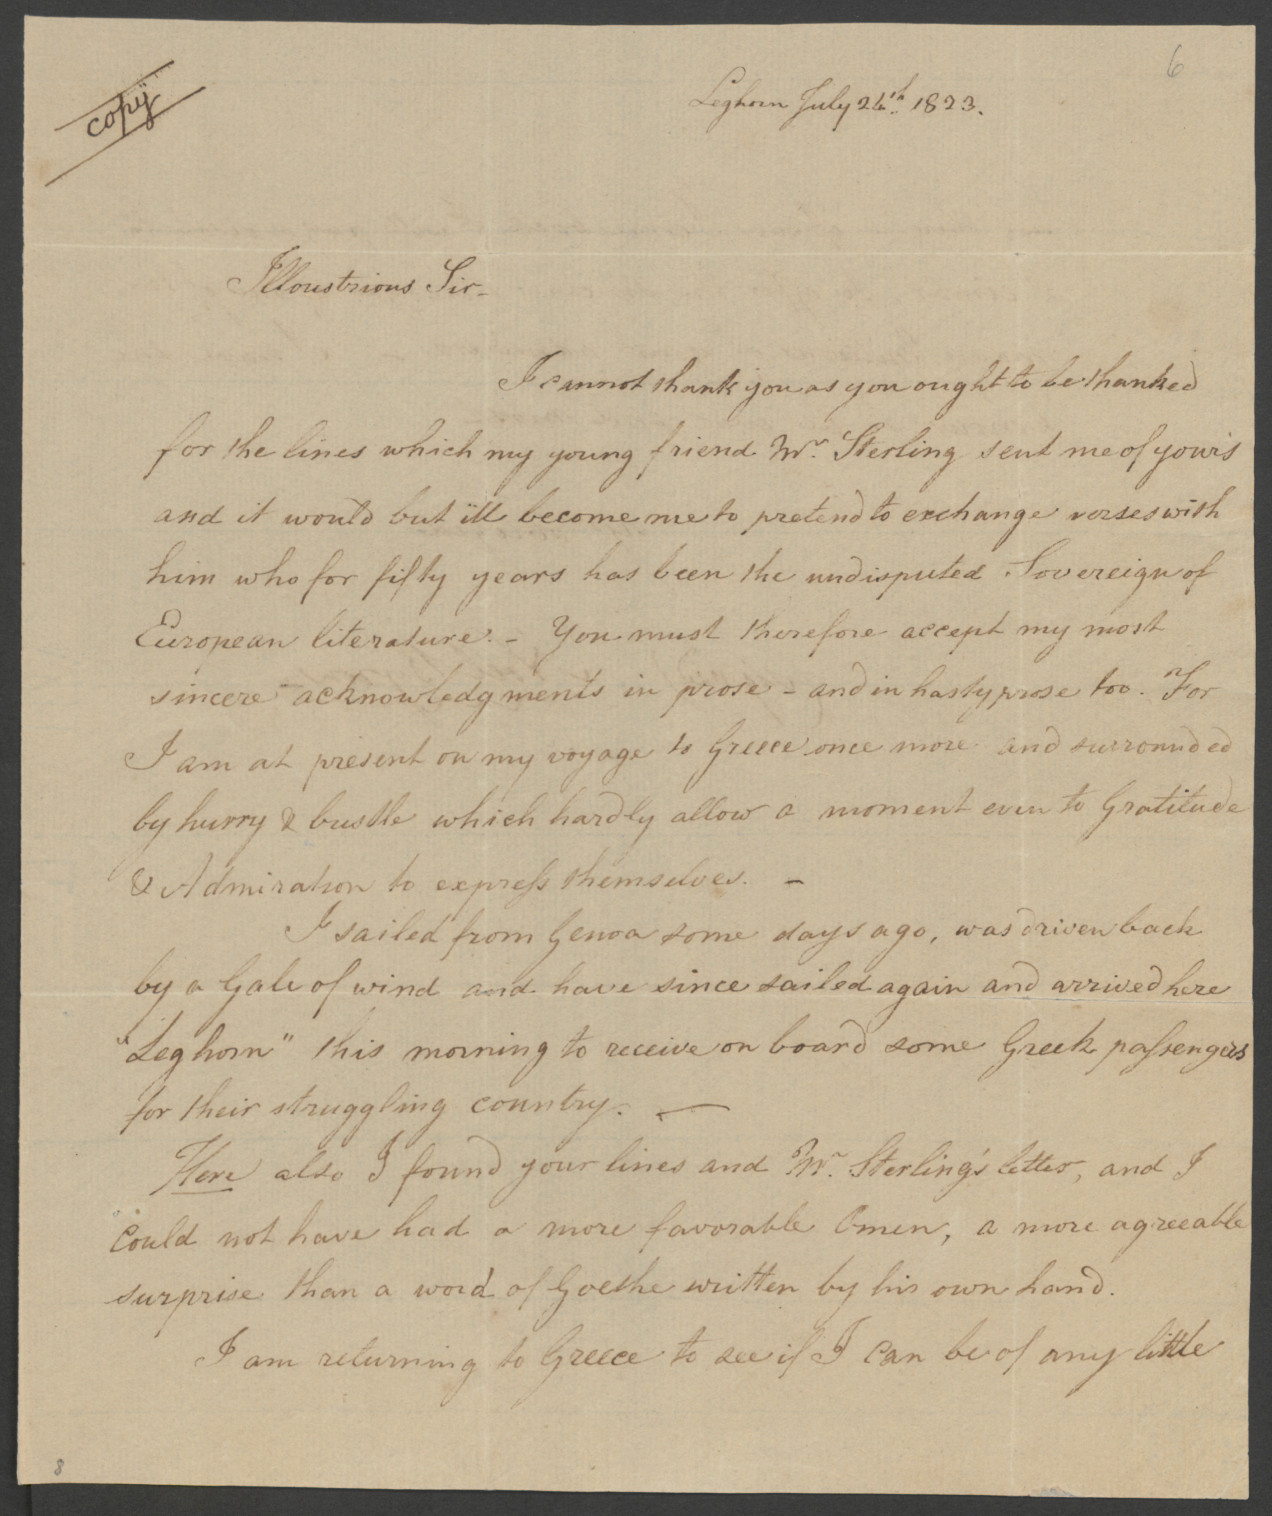 6
copy
Leghorn July 24th. 1823.
Illoustrious Sir-
I cannot thank you as you ought to be thanked
for the lines which my young friend Mr. Sterling sent me of your's
and it would but ill become me to pretend to exchange verses with
him who for fifty years has been the undisputed Sovereign of
European literature. - You must therefore accept my most
sincere acknowledgments in prose - and in hasty prose too. For
I am at present on my voyage to Greece once more and surrounded
by hurry & bustle which hardly allow a moment even to Gratitude
& Admiration to express themselves. -
I sailed from Genoa some days ago, was driven back
by a Gale of wind and have since sailed again and arrived here
"Leghorn" this morning to receive on board some Greek passengers
for their struggling country. -
Here also I found your lines and Mr. Sterling's letter, and I
could not have had a more favorable Omen, a more agreeable
surprise than a word of Goethe written by his own hand.
I am returning to Greece to see if I can be of any little
8